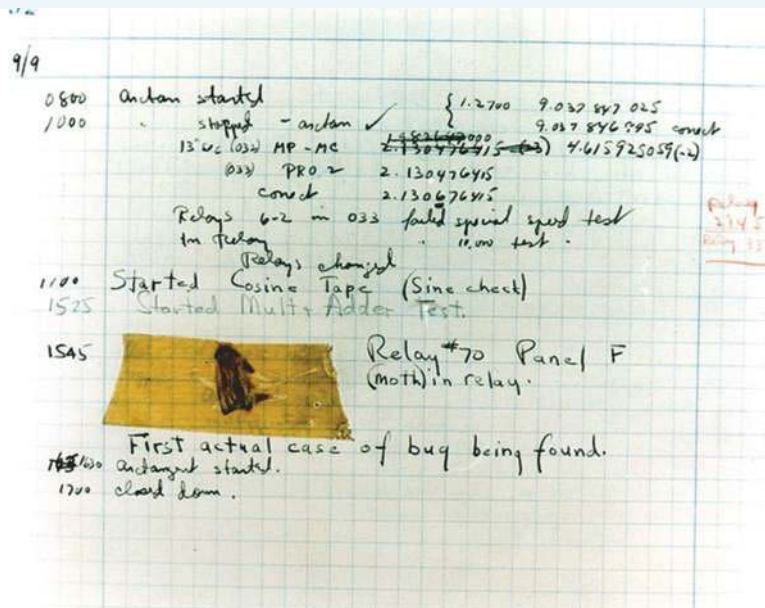 9/9
0800 antan started { 1.2700 9.037 847 025
1000 " stopped - antan ✓ 9.037 846 795 conect
13"uc (032) MP - MC 2.130476415 (-3) 4.615925059(-2)
(033) PRO 2 2.130476415
conect 2.130676415
Relays 6-2 in 033 failed special speed test
In Relay " 10,000 test .
Relays changed
1100 Started Cosine Tape (Sine check)
1525 Started Mult + Adder Test.
1545 Relay #70 Panel F
(moth) in relay.
First actual case of bug being found.
1630 antangent started.
1700 closed down .
Relay